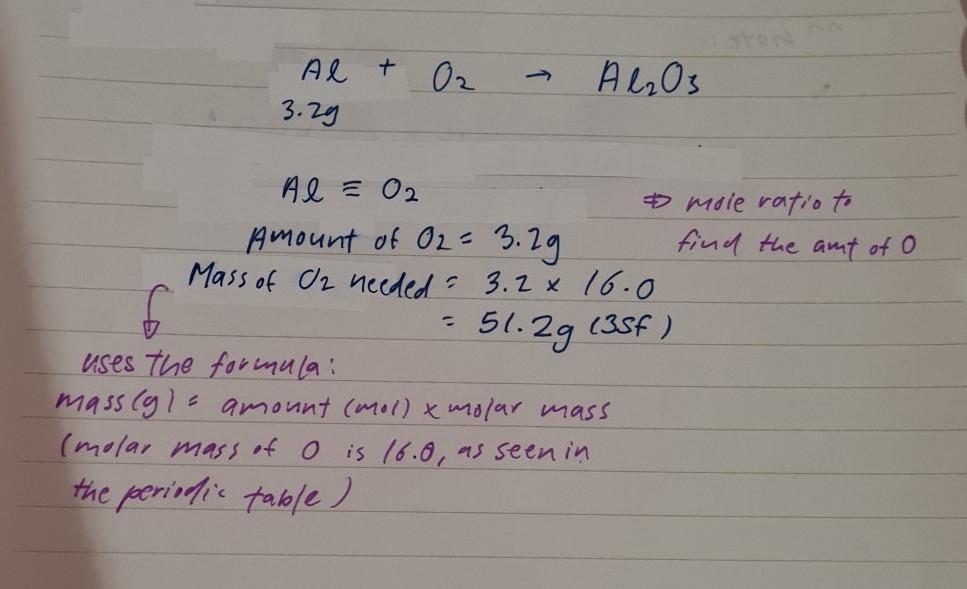 Al + O2 → Al2O3
3.2g
Al ≡ O2
⇒ mole ratio to
find the amt of O
Amount of O2 = 3.2g
Mass of O2 needed = 3.2 × 16.0
= 51.2g (3sf)
uses the formula:
mass(g) = amount (mol) x molar mass
(molar mass of O is 16.0, as seen in
the periodic table)